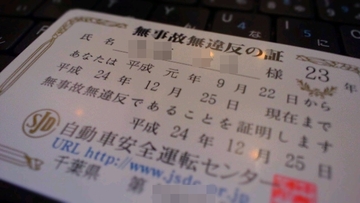 無事故無違反の証
氏名 様 23年
あなたは 平成 元年 9月 22日から
平成 24年 12月 25日 現在まで
無事故無違反であることを証明します
平成 24年 12月 25日
SJD
自動車安全運転センター
URL http://www.jsdc.or.jp
千葉県 第